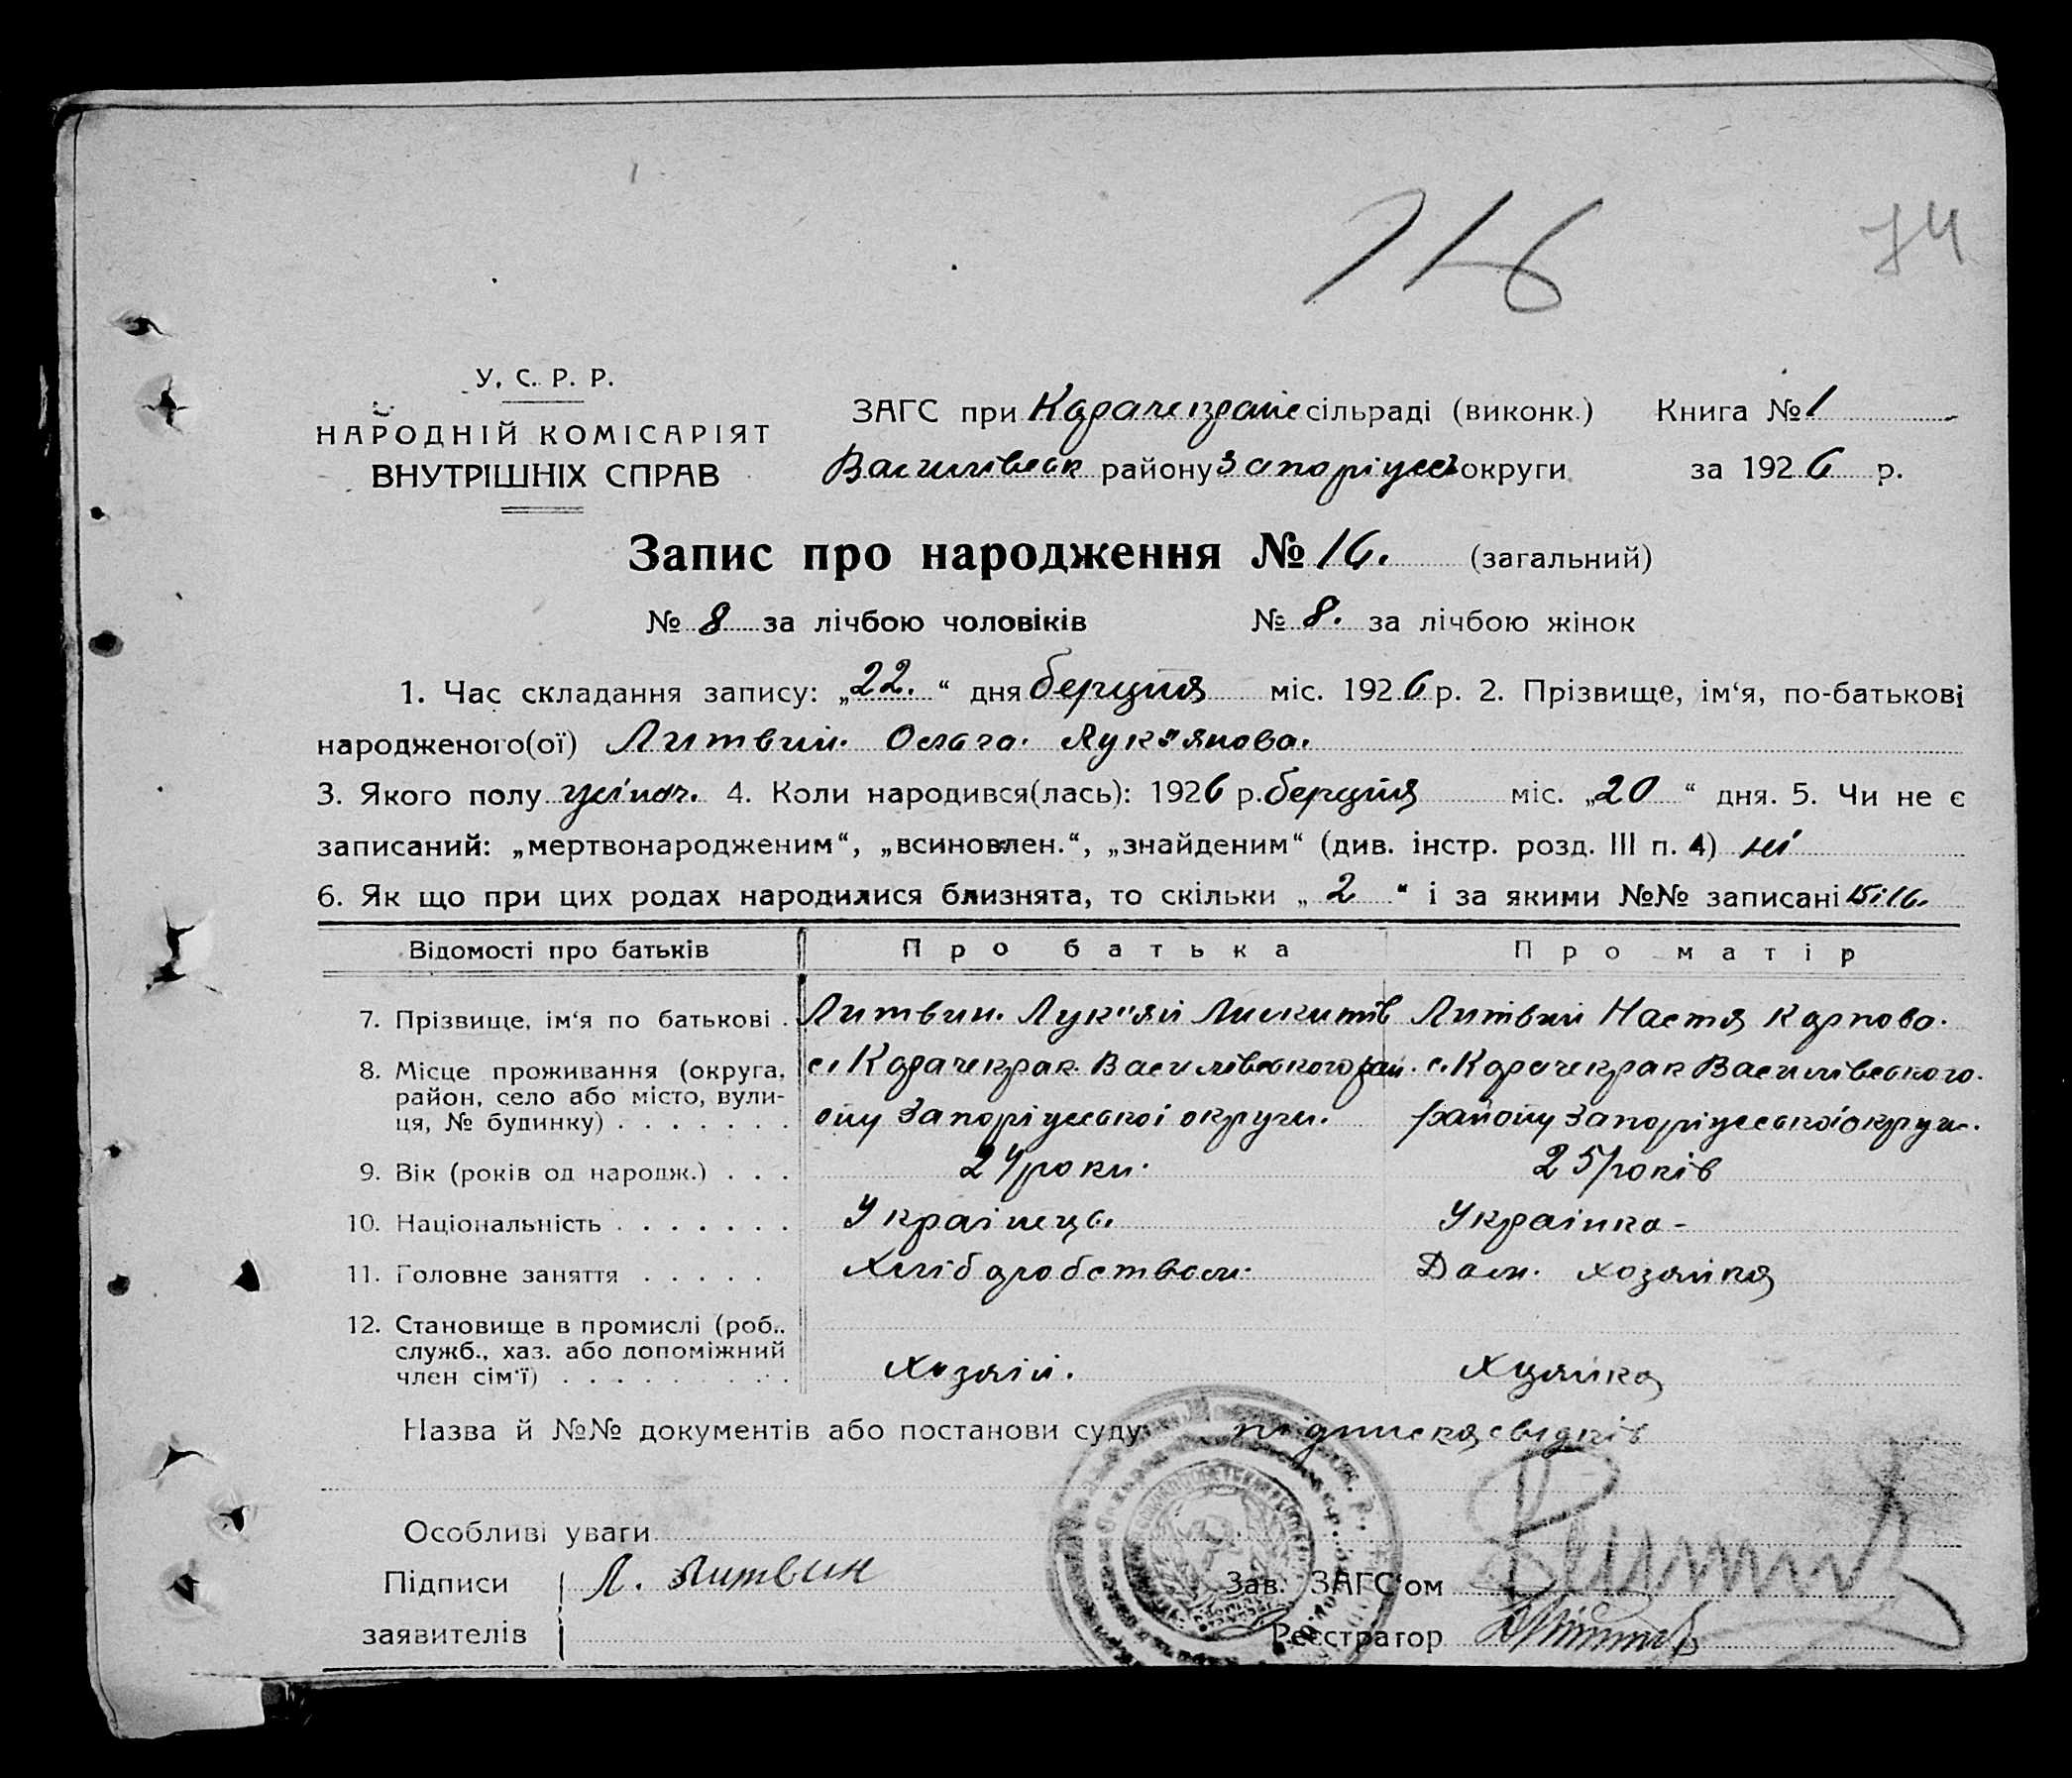 716
74
У. С. Р. Р.
НАРОДНІЙ КОМІСАРІЯТ
ВНУТРІШНІХ СПРАВ
ЗАГС при сільраді (виконк.) Книга № 1
Василівськ району Запоріжськ округи за 1926 р.
Запис про народження № 16. (загальний)
№ 8 за лічбою чоловіків № 8. за лічбою жінок
1. Час складання запису: „22.“ дня берцня міс. 1926 р. 2. Прізвище, ім‘я, по-батькові
народженого(ої) Литвин. Ольга. Лук"янова.
3. Якого полу жіноч. 4. Коли народився(лась): 1926 р. берцня міс. „20“ дня. 5. Чи не є
записаний: „мертвонародженим“, „всиновлен.“, „знайденим“ (див. інстр. розд. III п. 4) ні
6. Як що при цих родах народилися близнята, то скільки „2“ і за якими №№ записані 15 і 16.
Відомості про батьків Про батька Про матір
7. Прізвище, ім‘я по батькові . Литвин. Лук"ян Литвин Настя Карпова.
8. Місце проживання (округа, с. Карачекрак Василівського рай- с. Карачекрак Василівського
район, село або місто, вули- ону Запоріжської округи. району Запоріжської округи.
ця, № будинку) . . . . . . .
9. Вік (років од народж.) . . . 24 роки. 25 років
10. Національність . . . . . . . Українець. Українка -
11. Головне заняття . . . . . Хлібодробством. Дом. хозяйка
12. Становище в промислі (роб.,
служб., хаз. або допоміжний
член сім‘ї) . . . . . . . . . Хозяін. Хозяйка
Назва й №№ документів або постанови суду: підписка свідків
Особливі уваги
Підписи Л. Литвин Зав. ЗАГС‘ом
заявителів Реєстратор